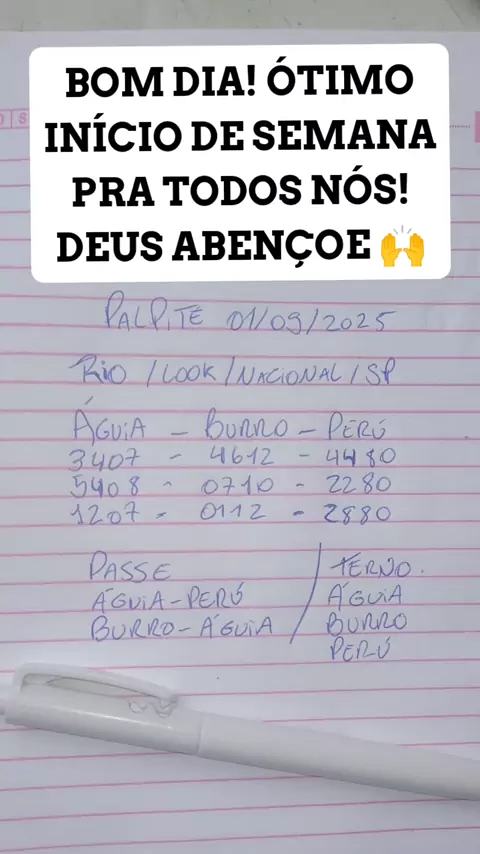 BOM DIA! ÓTIMO
INÍCIO DE SEMANA
PRA TODOS NÓS!
DEUS ABENÇOE 🙌
PALPITE 01/09/2025
RIO / LOOK / NACIONAL / SP
ÁGUIA - BURRO - PERÚ
3407 - 4612 - 4480
5408 - 0710 - 2280
1207 - 0112 - 2880
PASSE
ÁGUIA-PERÚ
BURRO-ÁGUIA /
TERNO.
ÁGUIA
BURRO
PERÚ